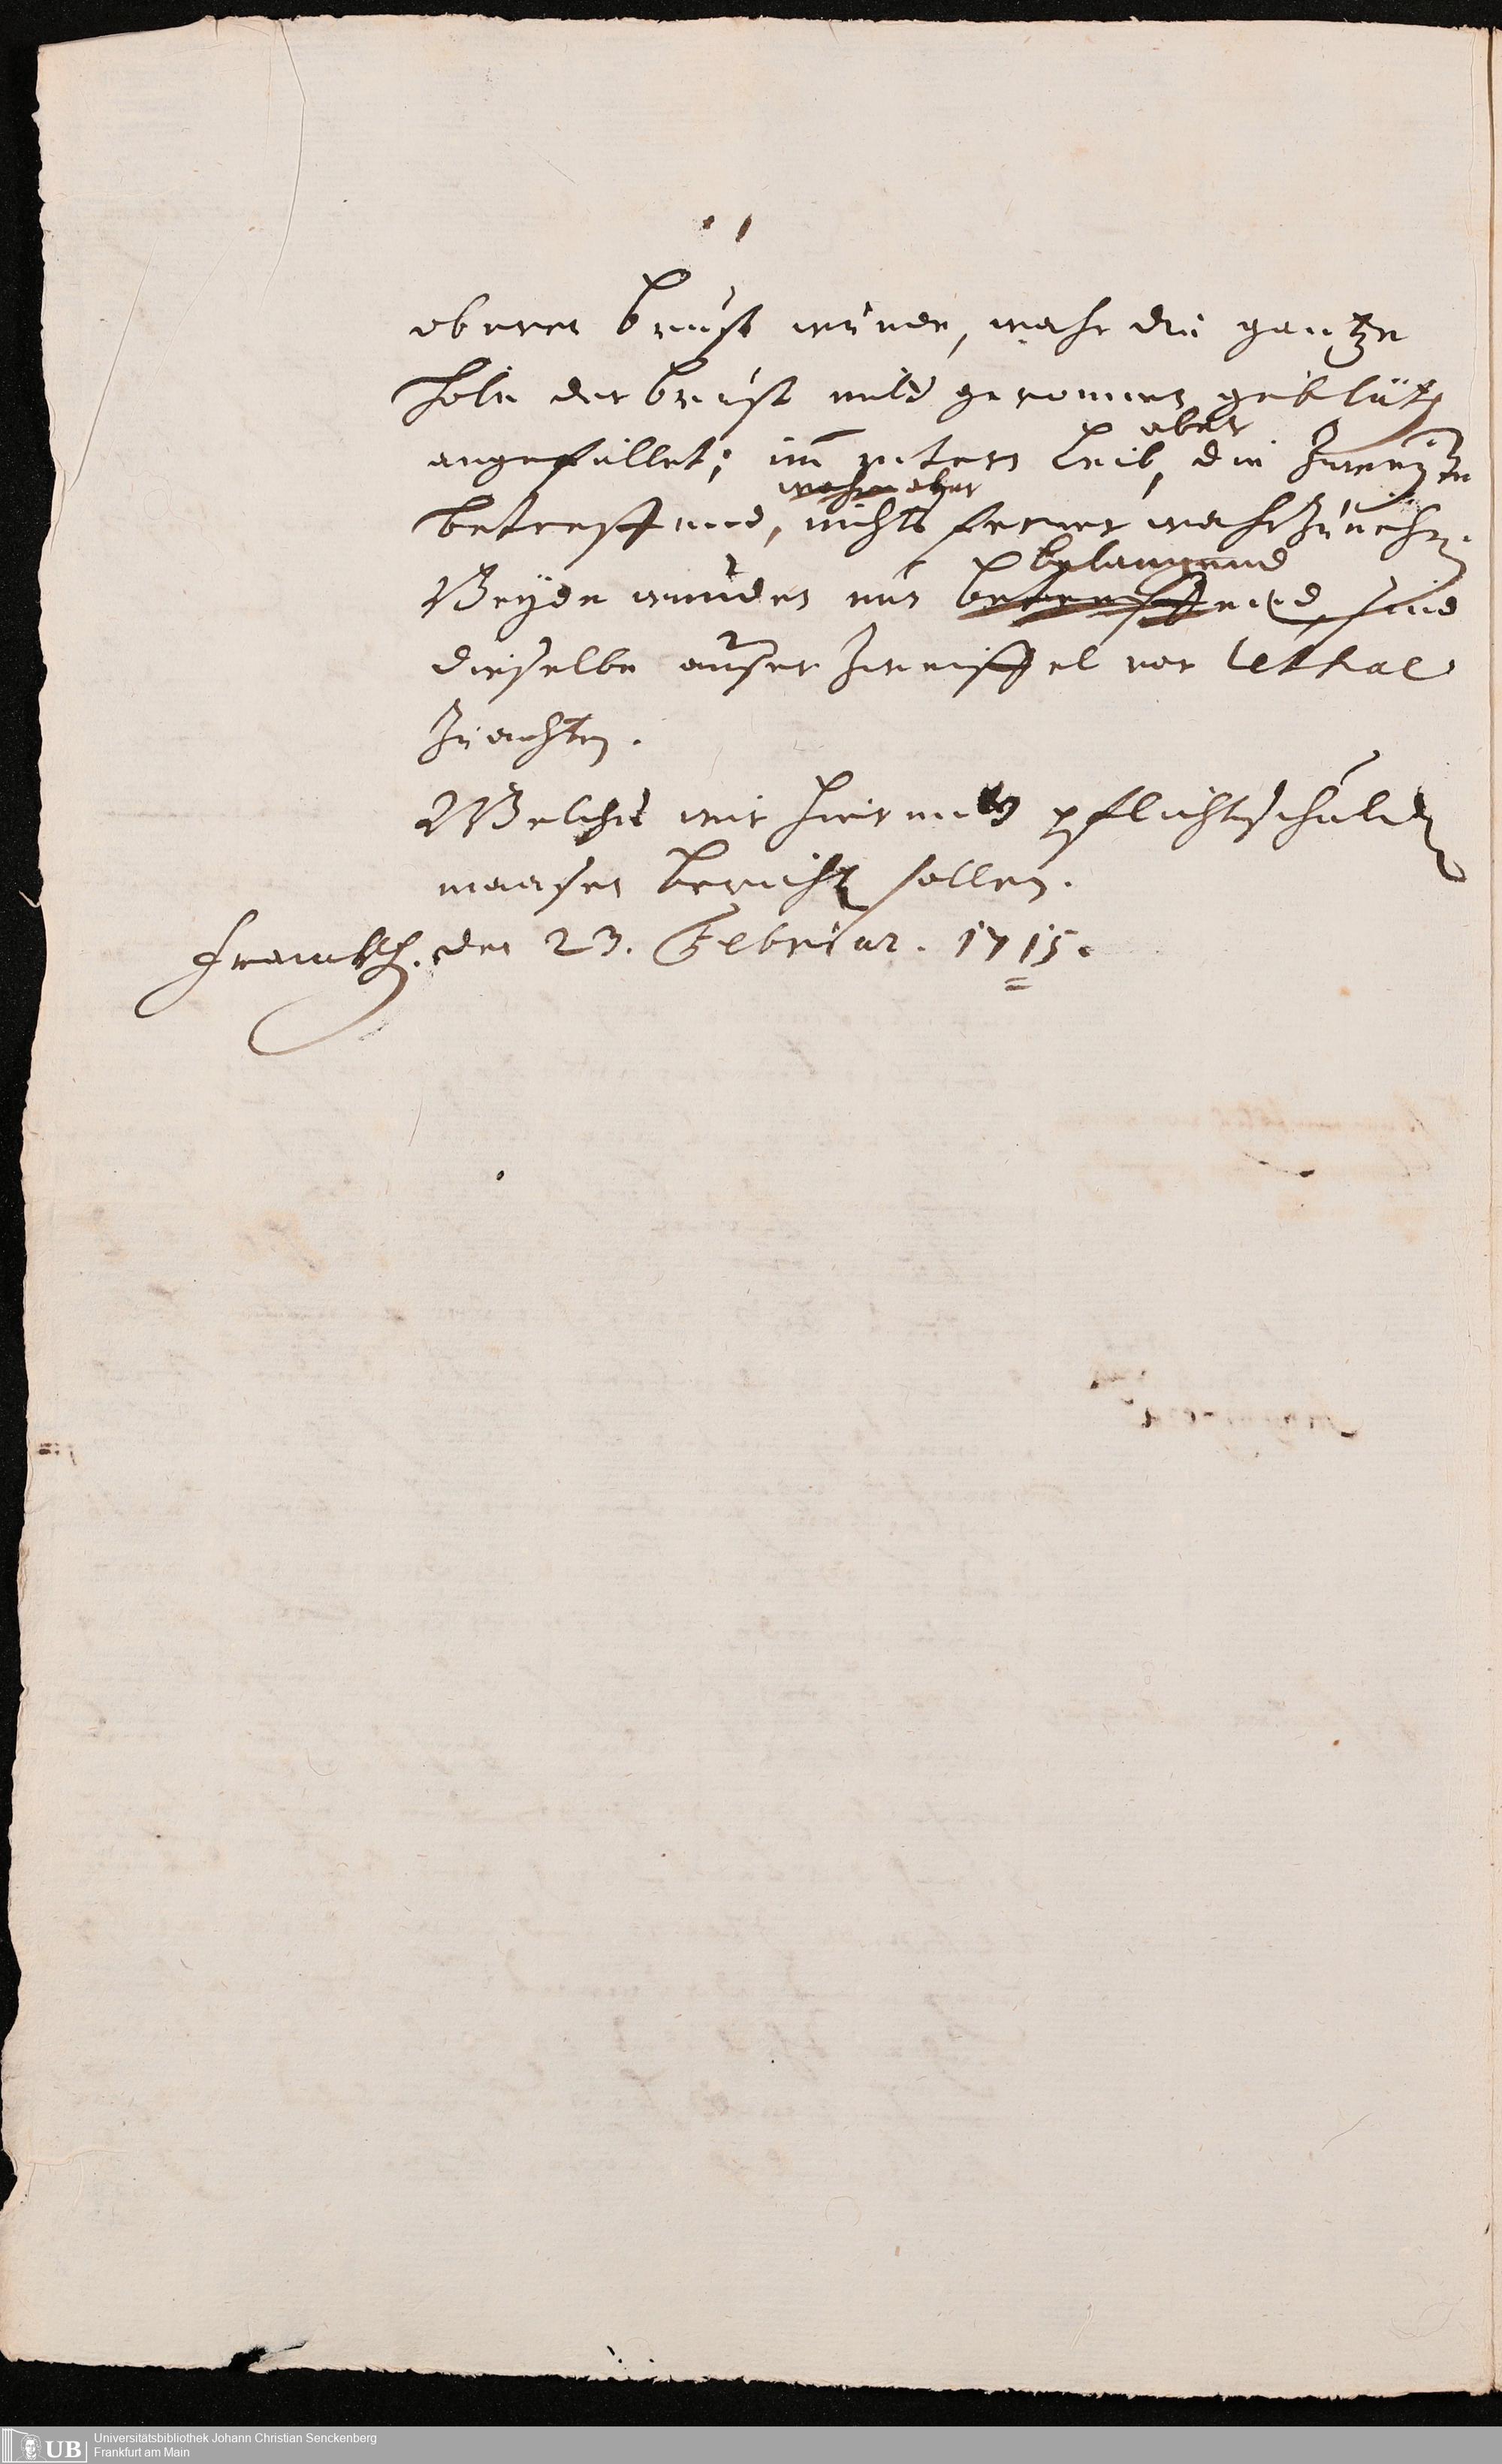 oberen brust wunde, wahr die gantze
hole der brust mitt geronnen geblüth
angefüllet; im untern Leib aber, die zweyte
betreffend, nichts ferner wahrzunehm.
Beyde wunden nun belangend sind
dieselbe auser zweiffel vor lethal
zu achten.
Welches wir hiermit pflichtschuldig
maasen bericht sollen.
Franckf. den 23. Februar. 1715.
UB
Universitätsbibliothek Johann Christian Senckenberg
Frankfurt am Main